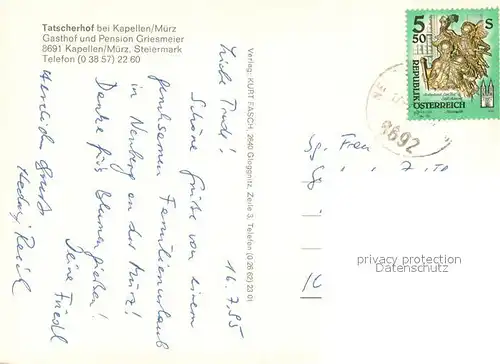 Tatscherhof bei Kapellen/Mürz
Gasthof und Pension Griesmeier
8691 Kapellen/Mürz, Steiermark
Telefon (0 38 57) 22 60
Verlag: KURT FASCH, 2640 Gloggnitz, Zeile 3, Telefon (0 26 62) 23 01
16.7.95
Liebe Trud!
Schöne Grüße von einem
gemeinsamen Familienurlaub
in Neuberg an der Mürz!
Danke fürs Blumengießen!
Deine Friedl
Herzliche Grüße
Hedwig
5 50 S
REPUBLIK
ÖSTERREICH
8692
Frau
privacy protection
watermark